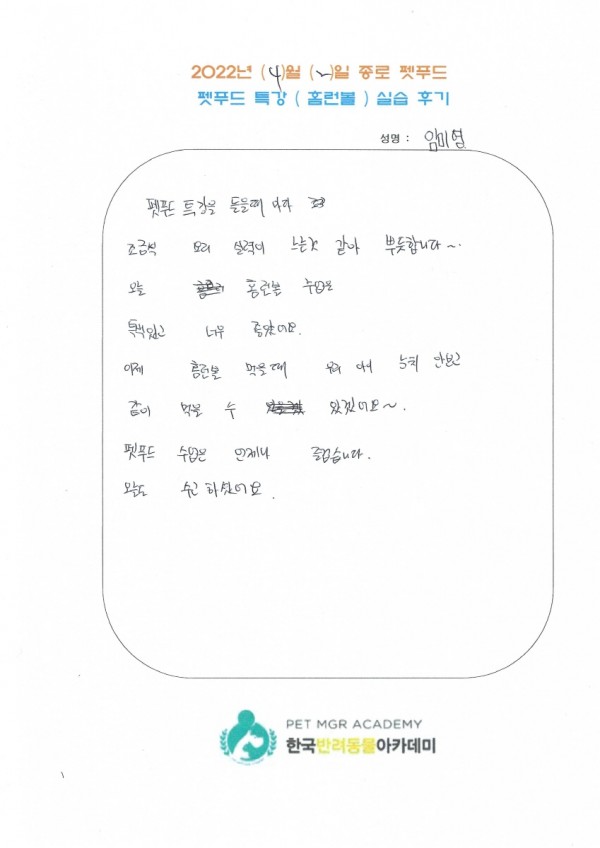 2022년 (4)월 (2)일 종로 펫푸드
펫푸드 특강 ( 홈런볼 ) 실습 후기
성명 : 임미영
펫푸드 특강을 들을때 마다
조금씩 요리 실력이 느는것 같아 뿌듯합니다~.
오늘 홈런볼 수업은
특색있고 너무 좋았어요.
이제 홈런볼 먹을때 우리 아이 눈치 안보고
같이 먹을 수 있겠어요~.
펫푸드 수업은 언제나 즐겁습니다.
오늘도 수고 하셨어요.
PET MGR ACADEMY
한국반려동물아카데미